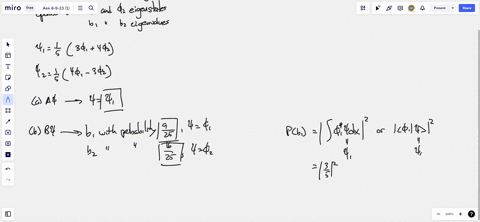 miro
Ass 8-9-23 (1)
Present
Share
and φ2 eigenstates
b1, " b2 eigenvalues
ψ1 = 1/5 (3φ1 + 4φ2)
ψ2 = 1/5 (4φ1 - 3φ2)
(a) Aψ → ψ = ψ1
(b) Bψ → b1 with probability 9/25, ψ = φ1
b2 " " 16/25, ψ = φ2
P(b1) = |∫ φ1* ψ dx|² or |<φ1|ψ>|²
ψ1 ψ1
= |3/5|²